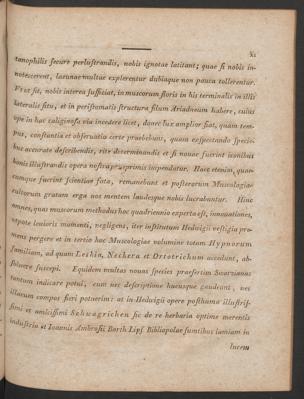 XI
tanophilis secure perlustrandis, nobis ignotae latitant; quae si nobis in-
notescerent, lacunae multae explerentur dubiaque non pauca tollerentur.
Vt ut sit, nobis interea sufficiat, in muscorum floris in his terminalis in illis
lateralis situ, et in peristomatis structura filum Ariadneum habere, cuius
ope in hac caliginosa via incedere licet, donec lux amplior fiat, quam tem-
pus, constantia et observatio certe praebebunt, quam exspectando specie-
bus accurate describendis, rite determinandis et si novae fuerint iconibus
bonis illustrandis opera nostra imprimis impendatur. Haec etenim, quae-
cumque fuerint scientiae fata, remanebunt et posterorum Muscologiae
cultorum gratam erga nos mentem laudesque nobis lucrabuntur. Hinc
omnes, quas muscorum methodus hoc quadriennio experta est, innovationes,
utpote levioris momenti, negligens, iter institutum Hedwigii vestigia pre-
mens pergere et in tertio hac Muscologiae volumine totam Hypnorum
familiam, ad quam Leskia, Neckera et Ortotrichum accedunt, ab-
solvere suscepi. Equidem multas novas species praesertim Swarzianas
tantum indicare potui, cum nec descriptione hucusque gaudeant, nec
illarum compos fieri potuerim: at in Hedwigii opere posthumo illustris-
simi et amicissimi Schwaegrichen sic de re herbaria optime merentis
industria et Ioannis Ambrosii Barth Lips. Bibliopolae sumtibus iamiam in
lucem